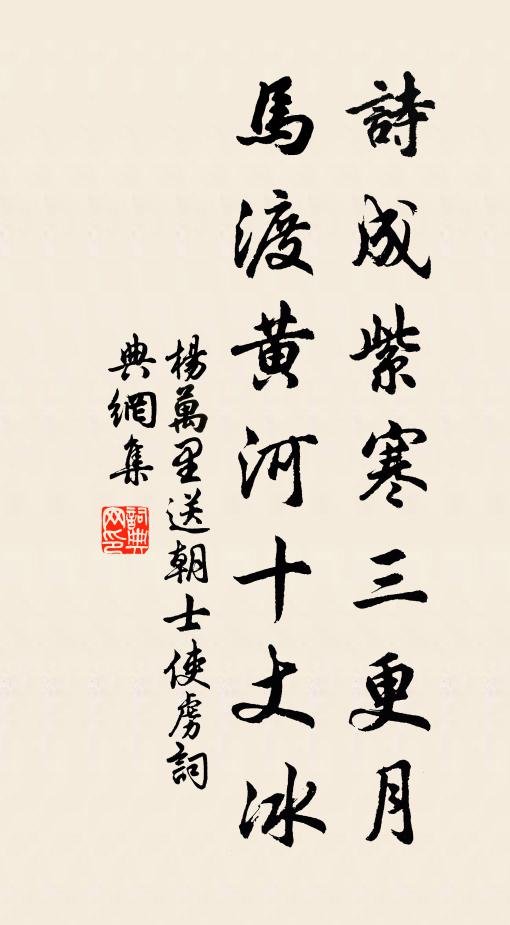 詩成紫寒三更月
馬渡黄河十丈冰
楊萬里送朝士使虜詞
典網集
詞典網印